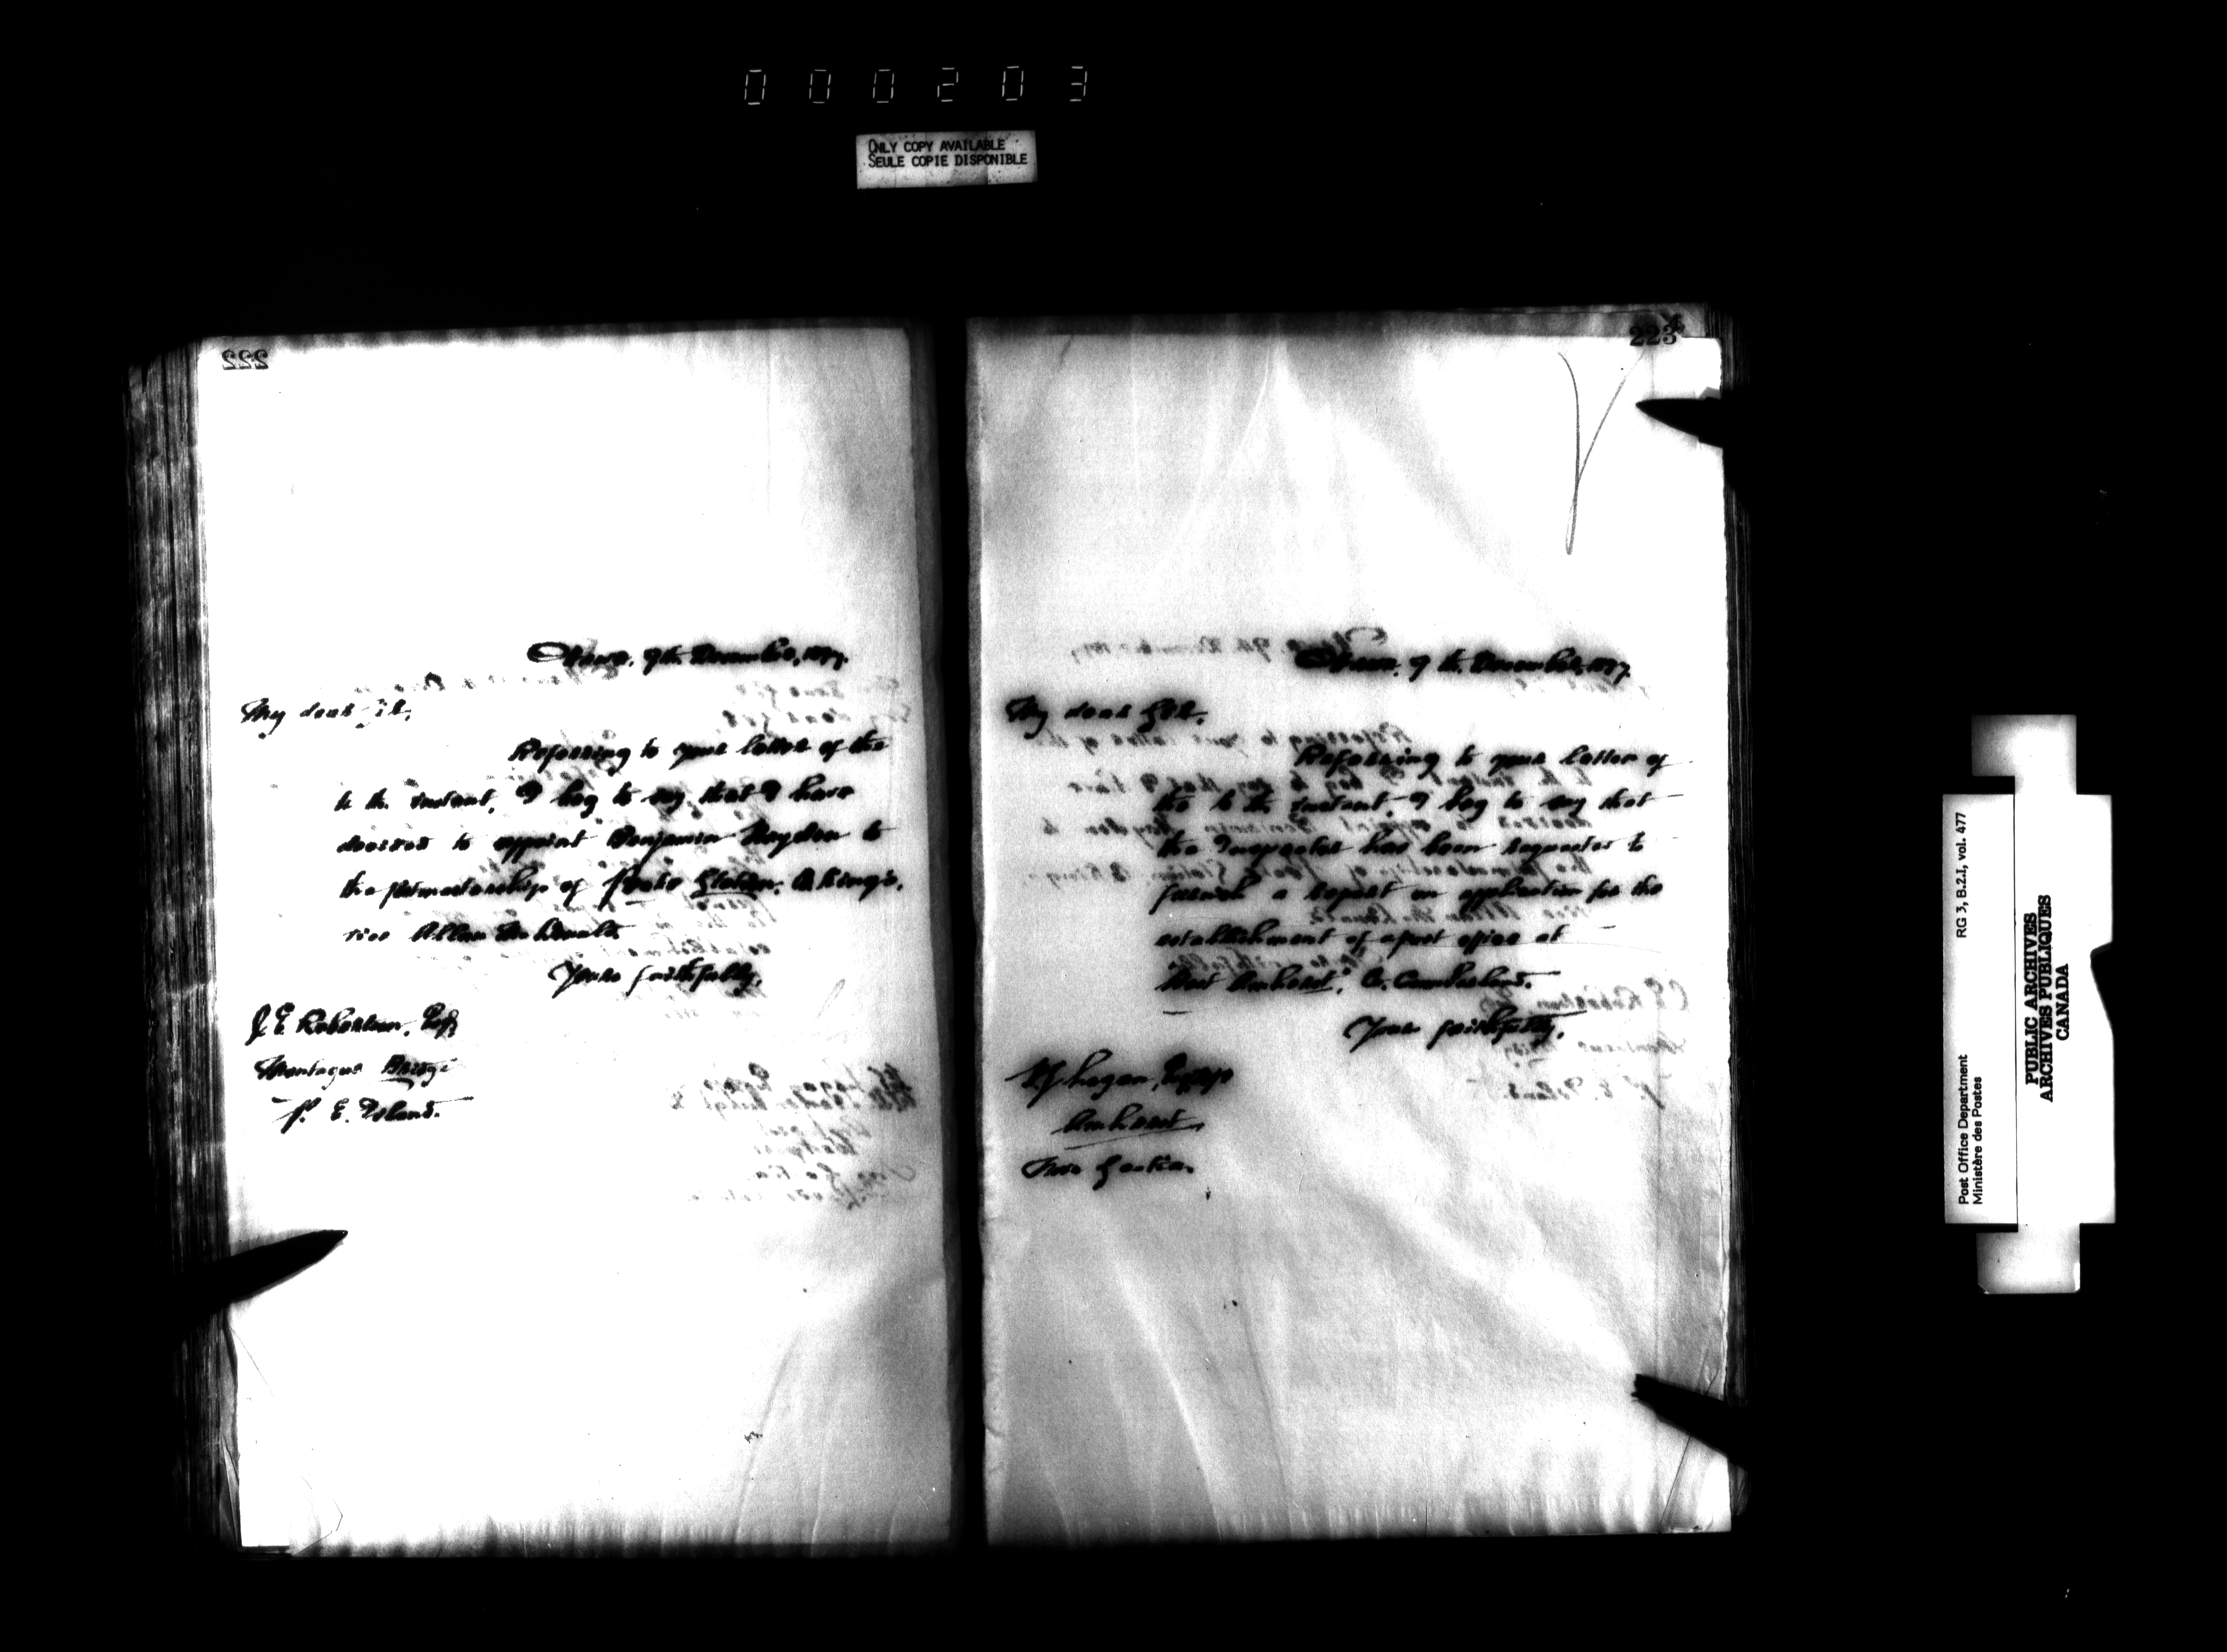 000203
ONLY COPY AVAILABLE
SEULE COPIE DISPONIBLE
222
Ottawa, 9th December, 1897.
My dear Sir,
Referring to your letter of the
instant, I beg to say that I have
decided to appoint Benjamin to
the postmastership of Station, Co. King's,
vice Allan McDonald
Yours faithfully,
J. E. Robertson, Esq.
Montague Bridge
P. E. Island.
223
Ottawa, 9th December, 1897.
My dear Sir,
Referring to your letter of
the instant, I beg to say that
the Inspector has been requested to
furnish a report on application for the
establishment of a post office at
West Amherst, Co. Cumberland.
Yours faithfully,
Logan, Esq.
Amherst
Nova Scotia.
Post Office Department
Ministère des Postes
RG 3, B.2.I, vol. 477
PUBLIC ARCHIVES
ARCHIVES PUBLIQUES
CANADA